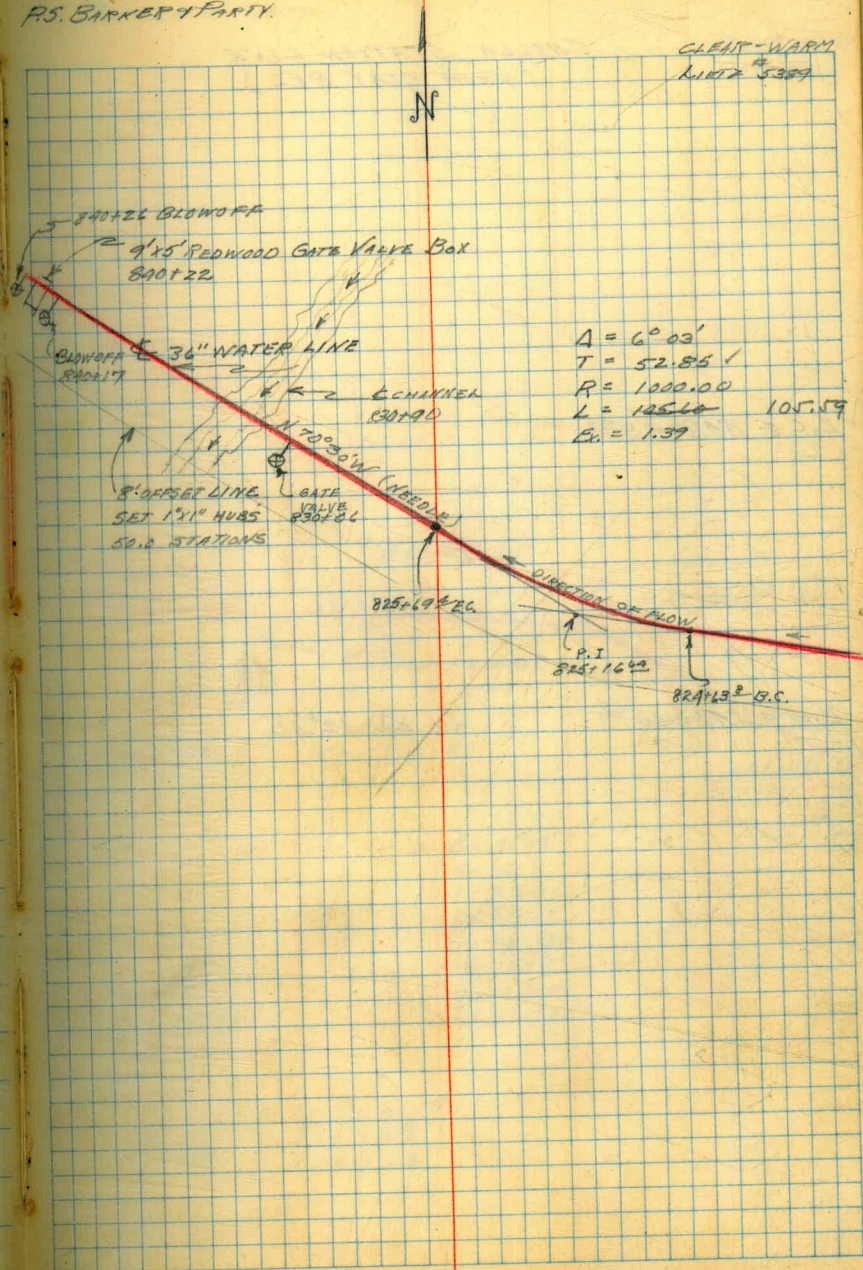 P.S. BARKER & PARTY.
CLEAR - WARM
LIETZ #5389
N
840+26 BLOWOFF
9'X5' REDWOOD GATE VALVE BOX
840+22
BLOWOFF
840+17
℄ 36" WATER LINE
℄ CHANNEL
830+90
Δ = 6° 03'
T = 52.85 ✓
R = 1000.00
L = 105.60 105.59
Ex. = 1.39
N 70°30'W (NEEDLE)
8' OFFSET LINE
SET 1"X1" HUBS
50.0 STATIONS
GATE
VALVE
830+06
DIRECTION OF FLOW
825+69 E.C.
P.I
825+16.64
824+63.8 B.C.